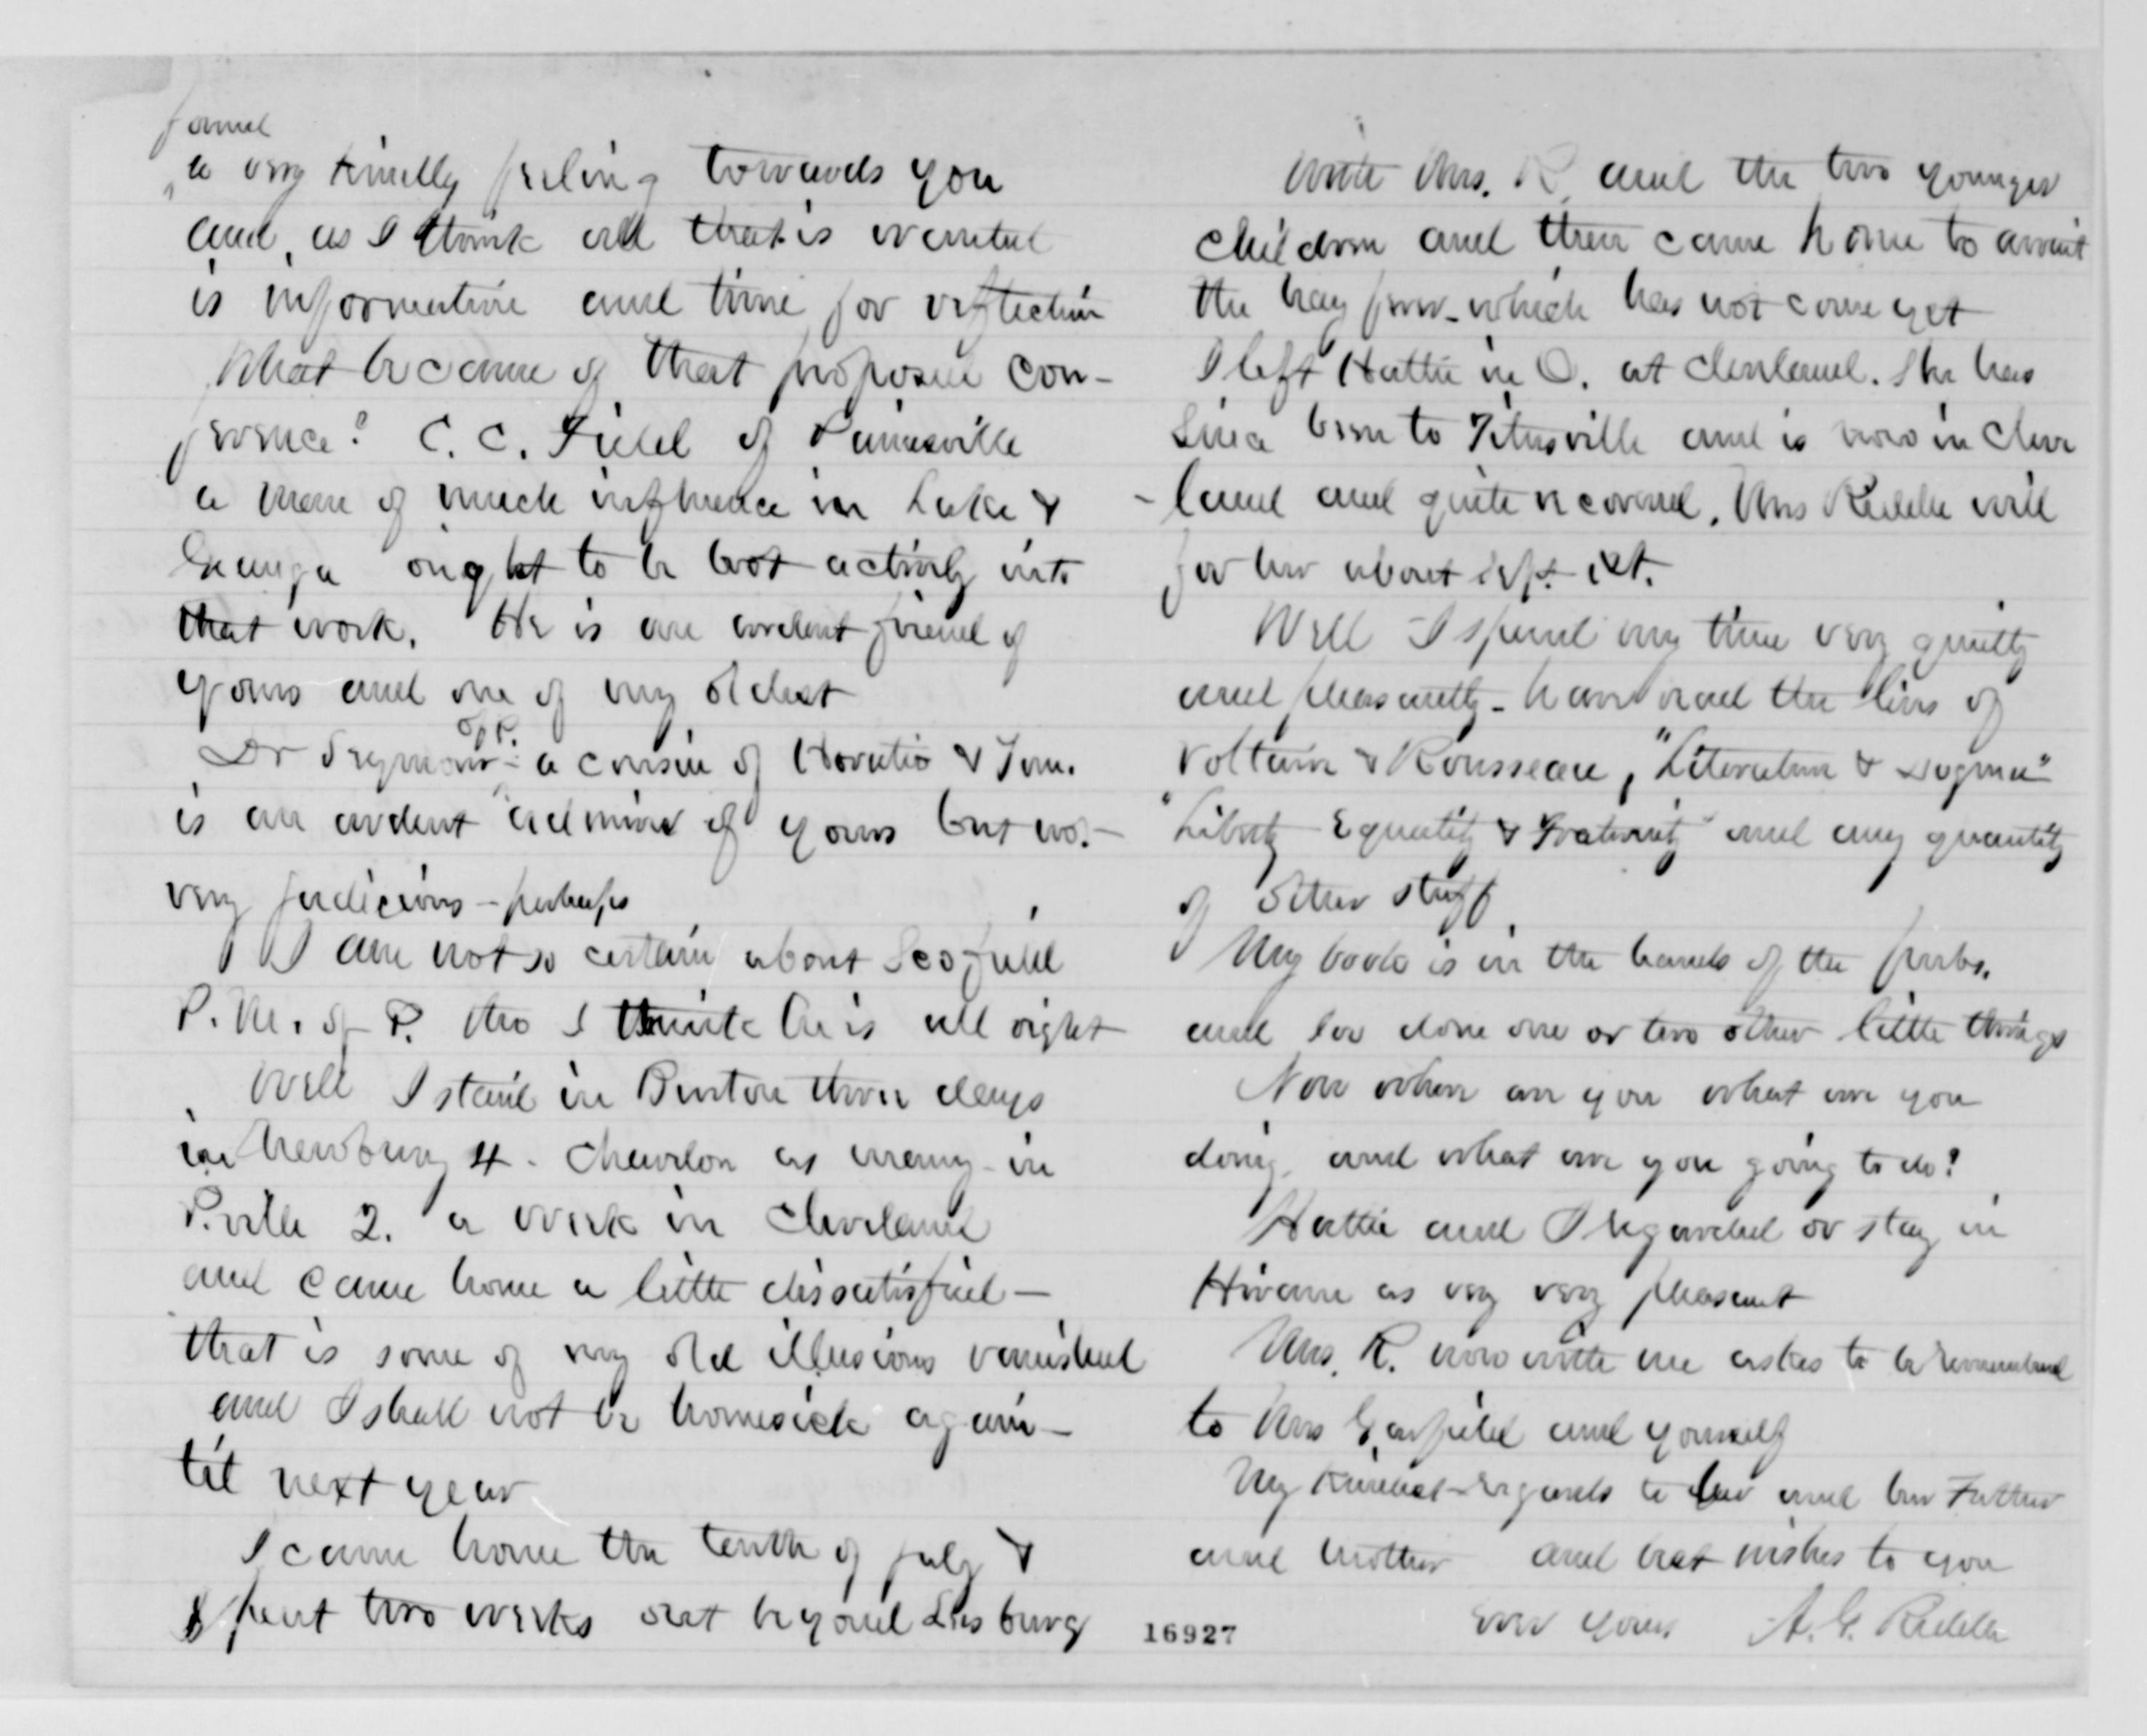 found
a very kindly feeling towards you
and, as I think all that is wanted
is information and time for reflection
What became of that proposed con-
ference? C. C. Field of Painesville
a man of much influence in Lake &
Geauga ought to be got actively into
that work. He is an ardent friend of
yours and one of my oldest
of P.
Dr Seymour - a cousin of Horatio & Tom.
is an ardent admirer of yours but not
very judicious - perhaps
I am not so certain about Scofield
P. M. of P. tho I think he is all right
Well I staid in Burton three days
in Newbury 4. Chardon as many - in
P.ville 2. a week in Cleveland
and came home a little dissatisfied -
that is some of my old illusions vanished
and I shall not be homesick again -
til next year
I came home the tenth of July &
spent two weeks out beyond Leesburg
with Mrs. R. and the two younger
children and then came home to await
the hay fever - which has not come yet
I left Hattie in O. at Cleveland. She has
since been to Titusville and is now in Cleve
- land and quite recovered. Mrs Riddle will
for her about Sept. 1st.
Well I spend my time very quietly
and pleasantly - have read the lives of
Voltaire & Rousseau, "Literature & Dogma"
"Liberty Equality & Fraternity" and any quantity
of other stuff
My book is in the hands of the pubs.
and done one or two other little things
Now where are you what are you
doing, and what are you going to do?
Hattie and I regarded our stay in
Hiram as very very pleasant
Mrs. R. now with me asks to be remembered
to Mrs Garfield and yourself
My kindest regards to her and her Father
and mother and best wishes to you
Ever yours A. G. Riddle
16927